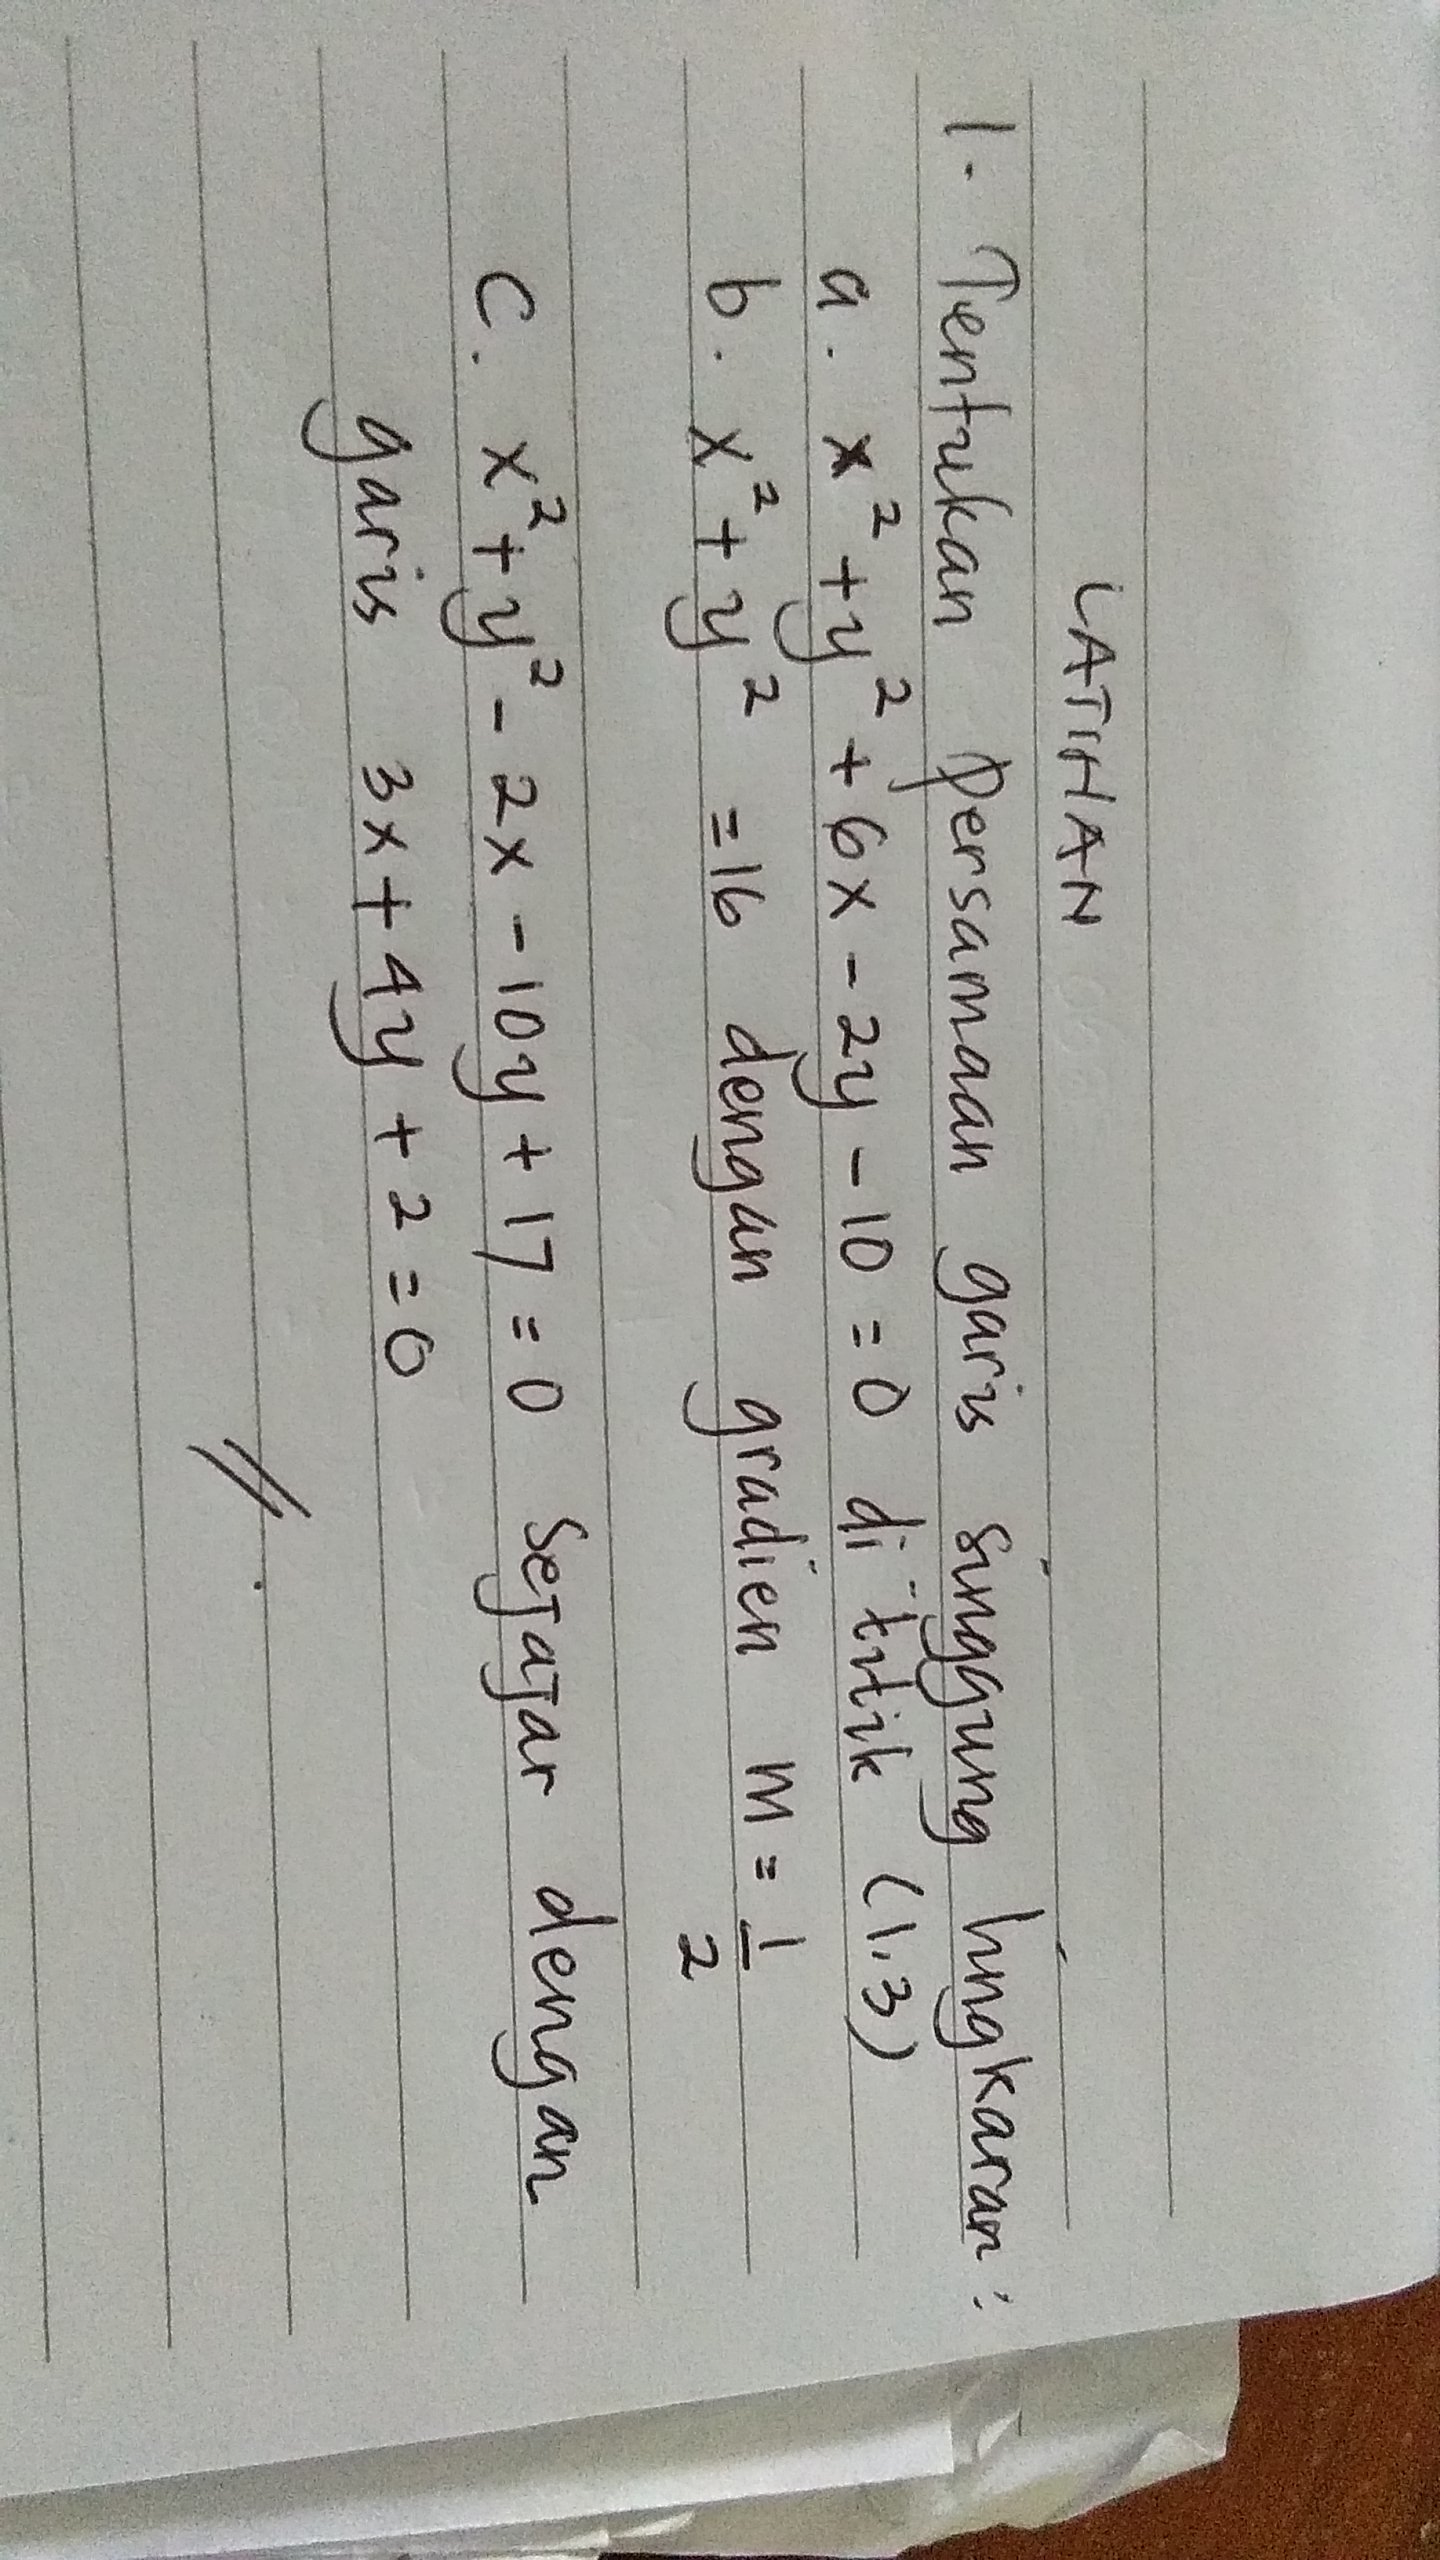 LATIHAN
1. Tentukan persamaan garis singgung lingkaran :
a. x² + y² + 6x - 2y - 10 = 0 di titik (1,3)
b. x² + y² = 16 dengan gradien m = 1/2
c. x² + y² - 2x - 10y + 17 = 0 sejajar dengan
garis 3x + 4y + 2 = 0